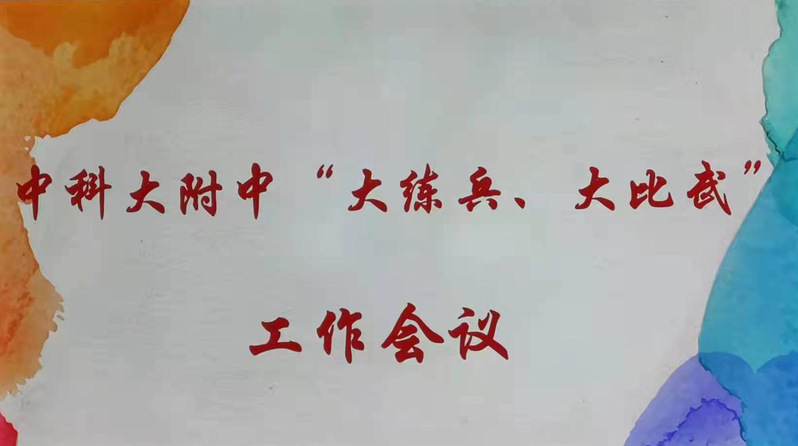 中科大附中“大练兵、大比武”
工作会议